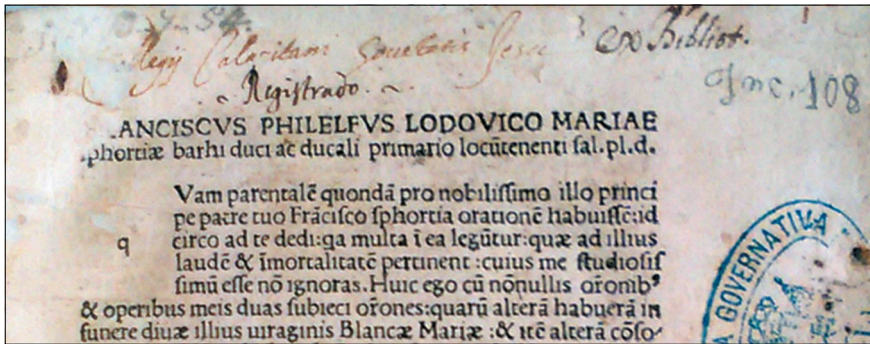 Collegij Calaritani Societatis Jesu ex Bibliot.
~ Registrado. ~
Inc. 108
ANCISCVS PHILELFVS LODOVICO MARIAE
phortiæ barhi duci ac ducali primario locūtenenti sal.pl.d.
Vam parentalē quondā pro nobilissimo illo princi
pe patre tuo Frācisco sphortia orationē habuissē:id
q
circo ad te dedi:qa multa ī ea legūtur:quæ ad illius
laudē & īmortalitatē pertinent :cuius me studiosis
simū esse nō ignoras.Huic ego cū nōnullis orōnibꝰ
& operibus meis duas subieci orōnes:quarū alterā habuerā in
funere diuæ illius uiraginis Blancæ Mariæ :& itē alterā cōso-
A GOVERNATIVA